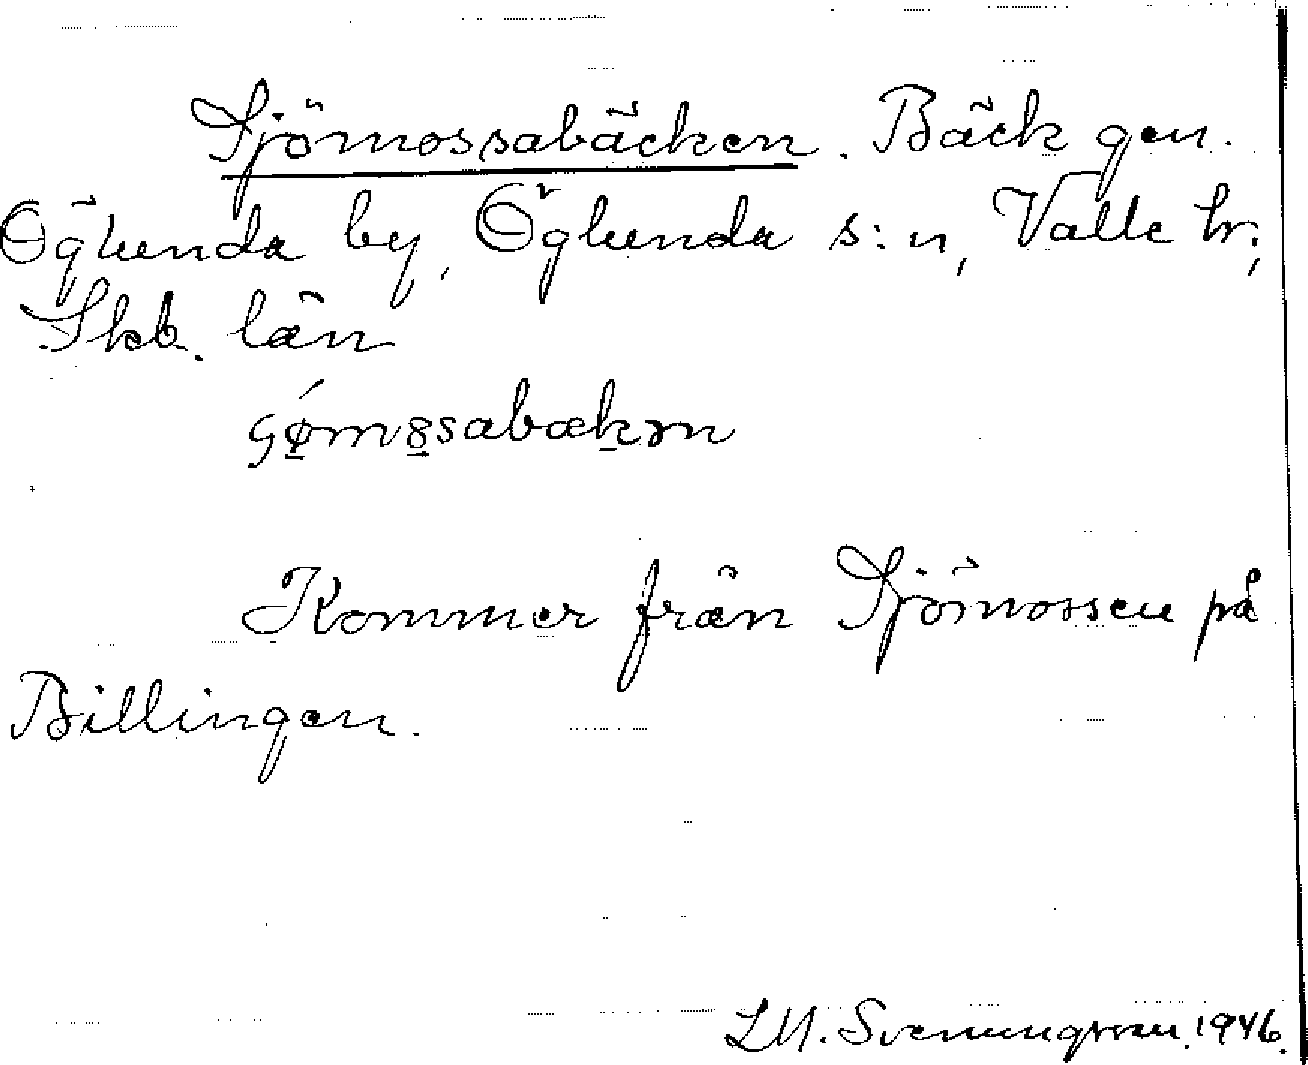 Sjömossabäcken. Bäck gen.
Öglunda by, Öglunda s:n, Valle hr,
Skb. län
Kommer från Sjömossen på
Billingen.
L.M. Svenungsson 1946.